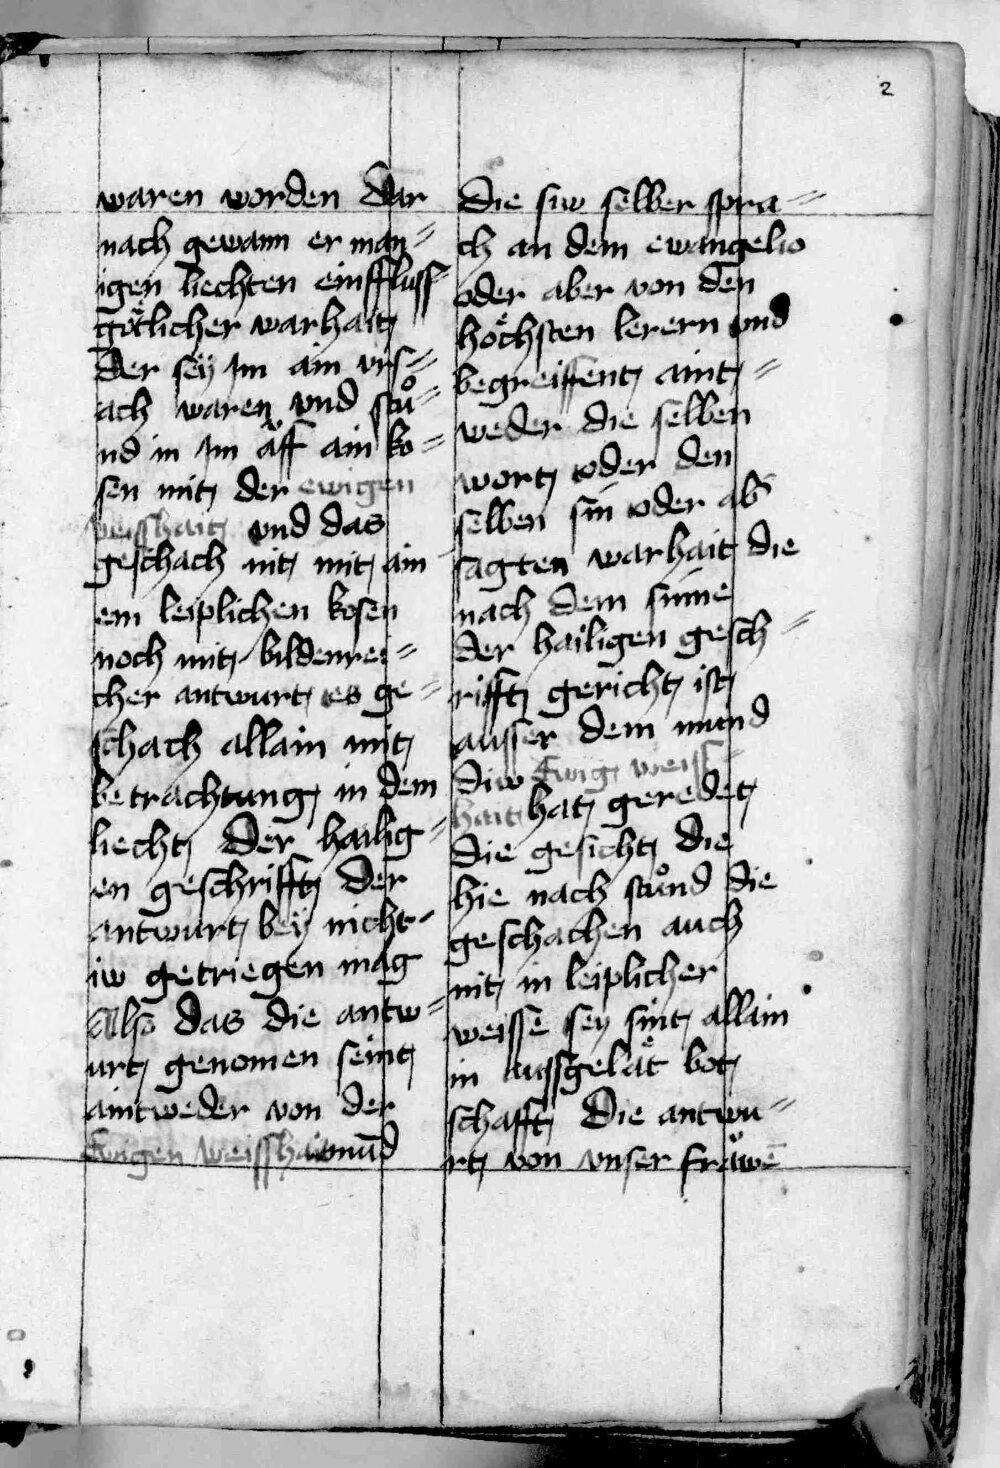 2
waren worden Dar
nach gewann er man=
igen liechten einffluss=
götlicher warhait
Der sey Im ain vrs=
ach waren vnd stů=
nd in Im äff ain ko=
sen mit der ewigen
weisshait vnd das
geschach nit mit ain
em leiplichen kosen
noch mit bildenrei=
cher antwurt es ge=
schach allain mit
betrachtung in dem
liecht Der hailig=
en geschrifft Der
antwurt bey nicht=
iw getriegen mag
Also das die antw=
urt genomen seint
aintweder von der
Ewigen weisshait mūd
Die siw selber spra=
ch an dem ewangelio
oder aber von den
höchsten lerern vnd
begreiffent aint=
weder die selben
wort oder den
selben sin oder ab
sagten warhait die
nach dem sinne
der hailigen gesch=
rifft gericht ist
ausser dem mund
Diw Ewig weiss=
hait hat geredet
Die gesicht die
hie nach stůnd die
geschachen auch
nit in leiplicher
weisse sey sint allain
in aussgelät bot
schafft Die antwu=
rt von vnser fräwē